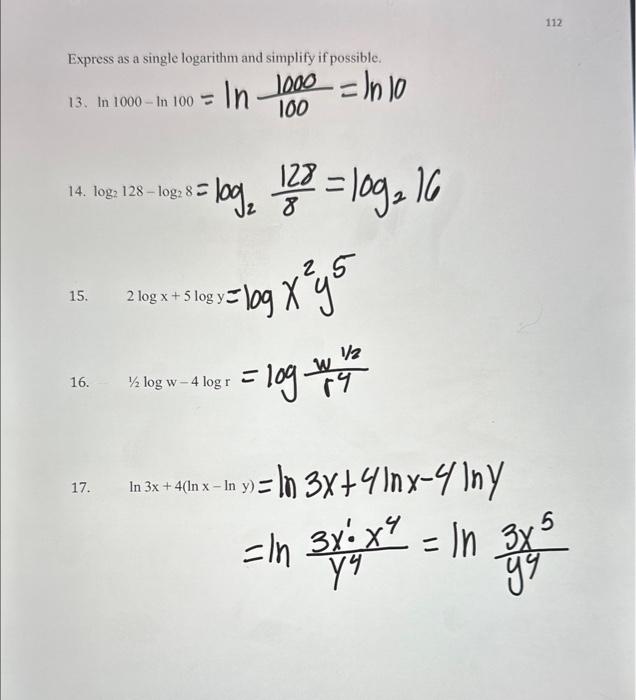 112
Express as a single logarithm and simplify if possible.
13. ln 1000 – ln 100 = ln 1000/100 = ln 10
14. log₂ 128 – log₂ 8 = log₂ 128/8 = log₂ 16
15. 2 log x + 5 log y = log x²y⁵
16. ½ log w – 4 log r = log w^1/2 / r⁴
17. ln 3x + 4(ln x – ln y) = ln 3x + 4 ln x – 4 ln y
= ln 3x¹·x⁴/y⁴ = ln 3x⁵/y⁴